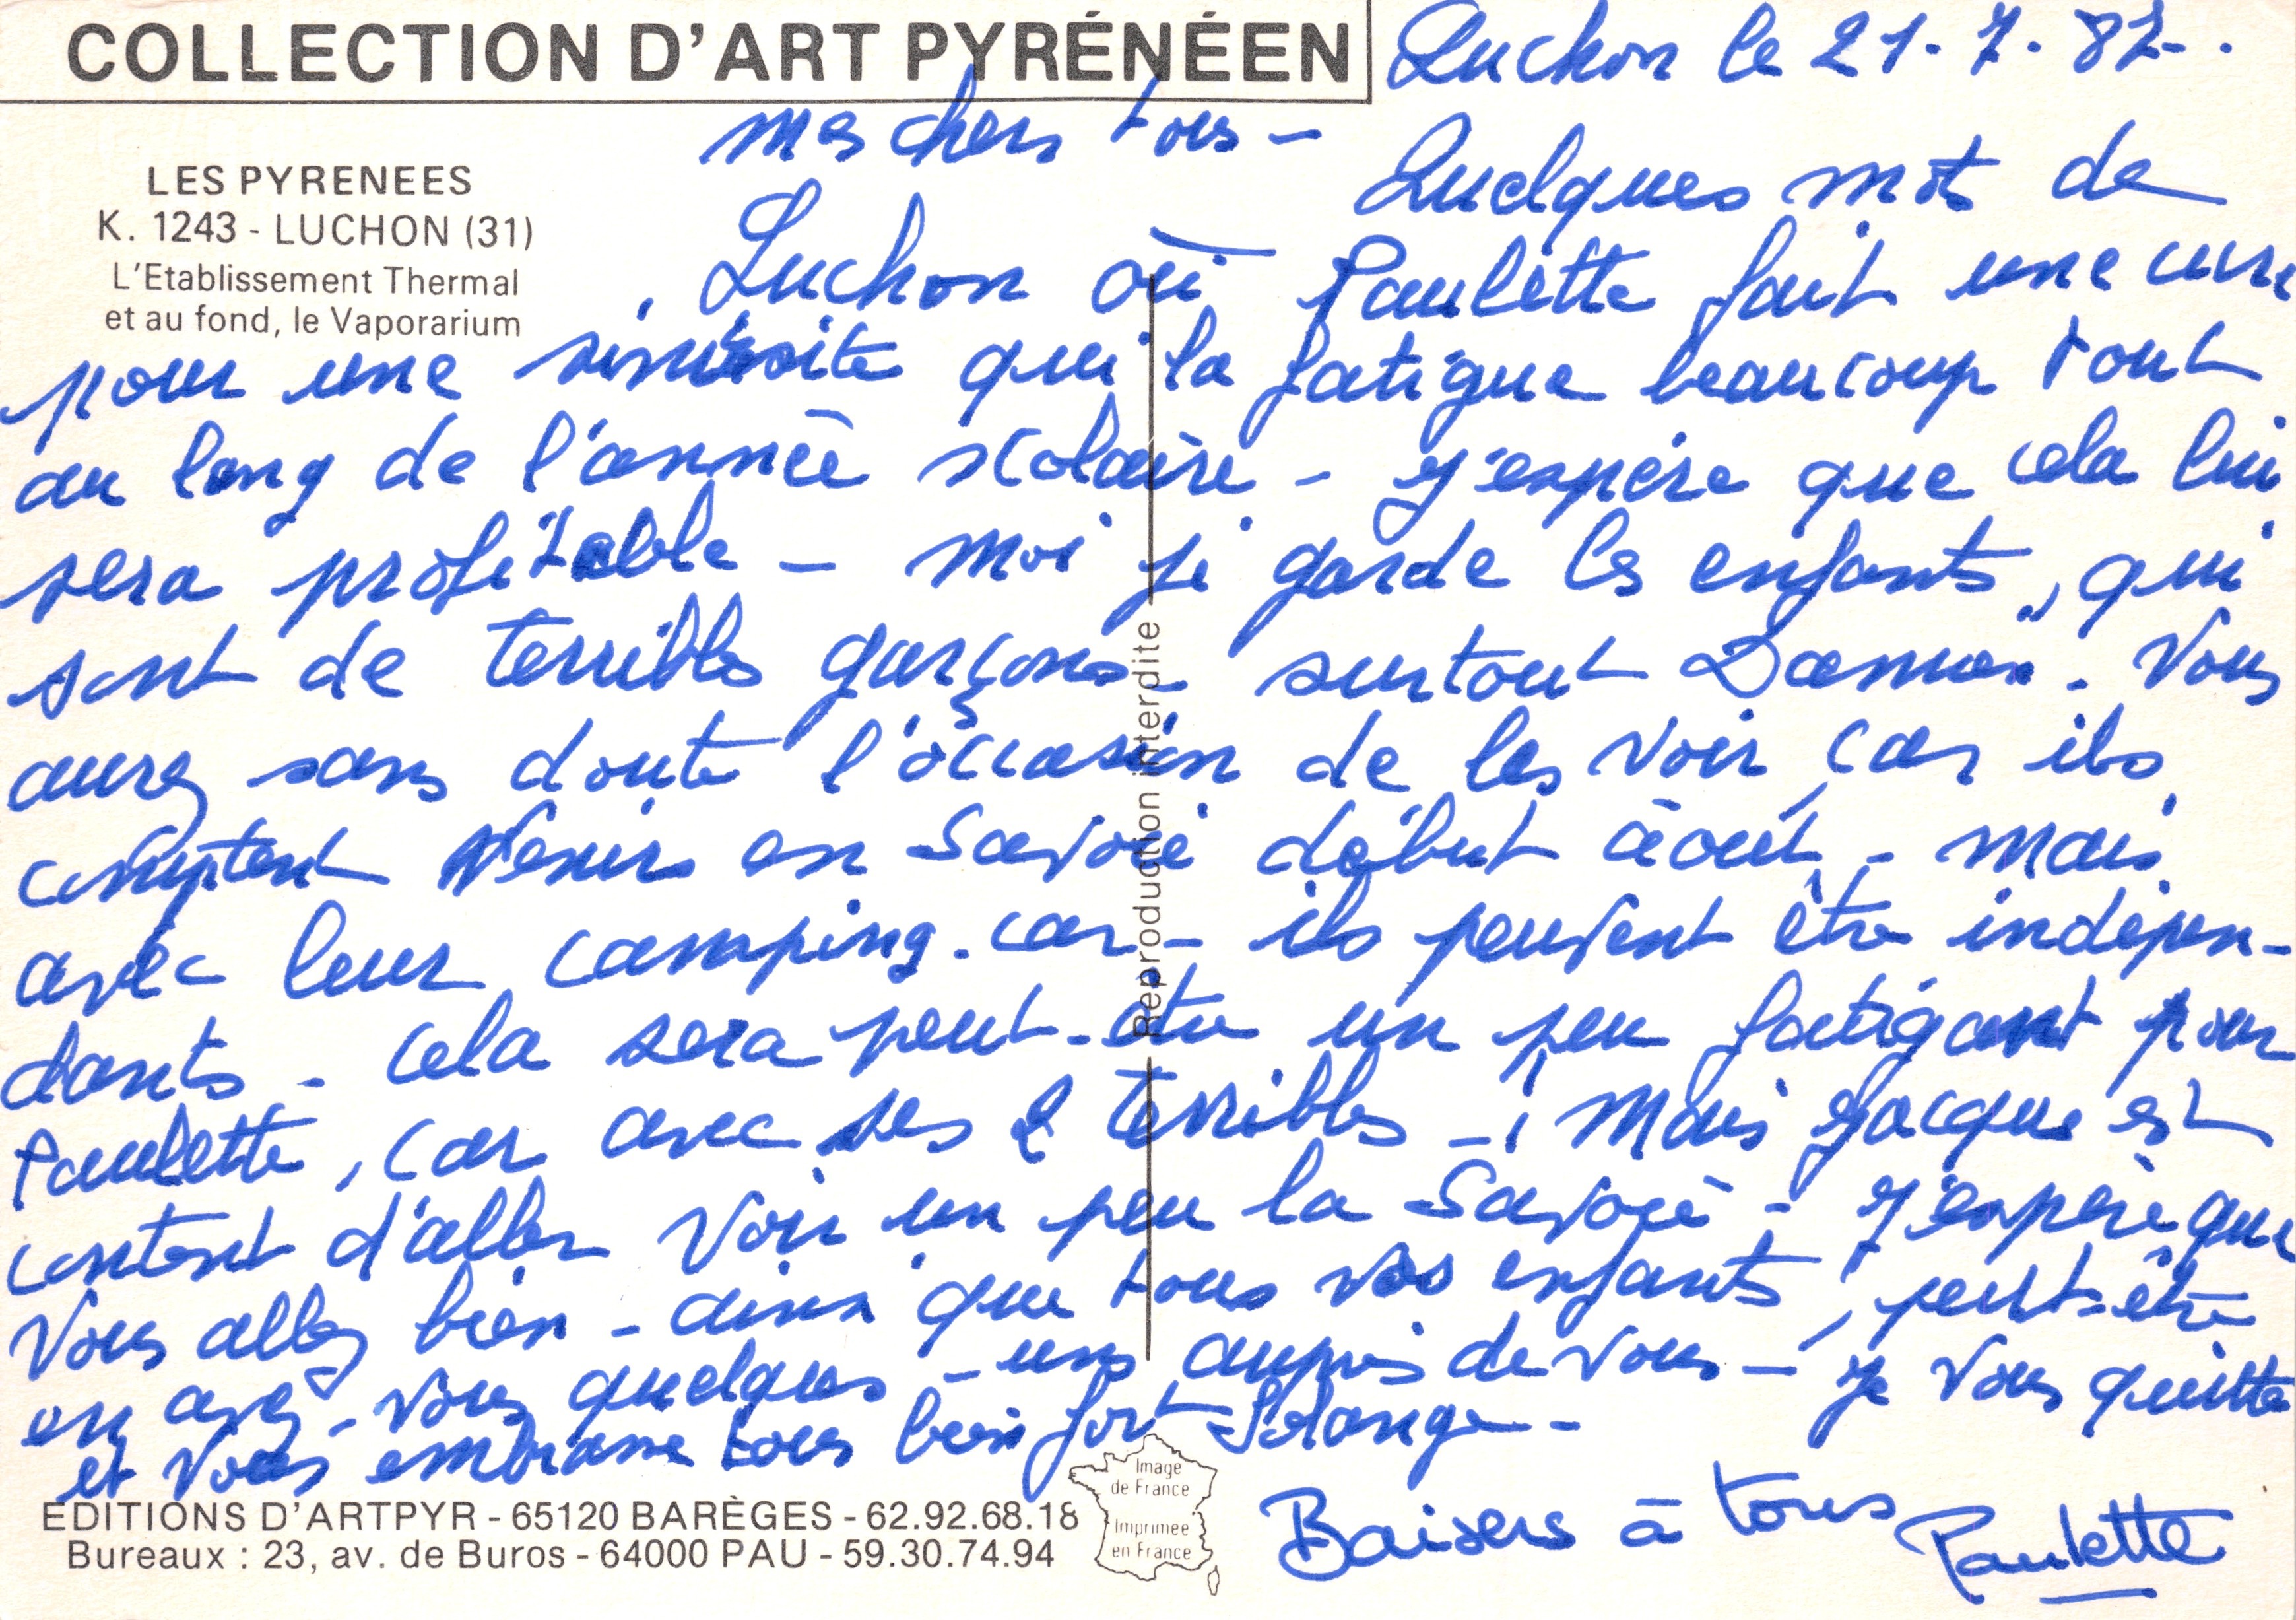 COLLECTION D'ART PYRÉNÉEN
LES PYRENEES
K. 1243 - LUCHON (31)
L'Etablissement Thermal
et au fond, le Vaporarium
Luchon le 21.7.87.
mes chers tous -
Quelques mots de
Luchon où Paulette fait une cure
pour une sinusite qui la fatigue beaucoup tout
au long de l'année scolaire - J'espère que cela lui
sera profitable - Moi je garde les enfants, qui
sont de terribles garçons - surtout Damien. Vous
aurez sans doute l'occasion de les voir car ils
comptent venir en Savoie début août - Mais
avec leur camping-car - ils peuvent être indépen-
dants - cela sera peut-être un peu fatigant pour
Paulette, car avec ses 2 terribles - ! Mais Jacques est
content d'aller voir un peu la Savoie - J'espère que
vous allez bien - ainsi que tous vos enfants, peut-être
en avez-vous quelques-uns auprès de vous - je vous quitte
et vous embrasse tous bien fort Solange -
Baisers à tous
Paulette
Reproduction interdite
EDITIONS D'ARTPYR - 65120 BARÈGES - 62.92.68.18
Bureaux : 23, av. de Buros - 64000 PAU - 59.30.74.94
Image
de France
Imprimée
en France